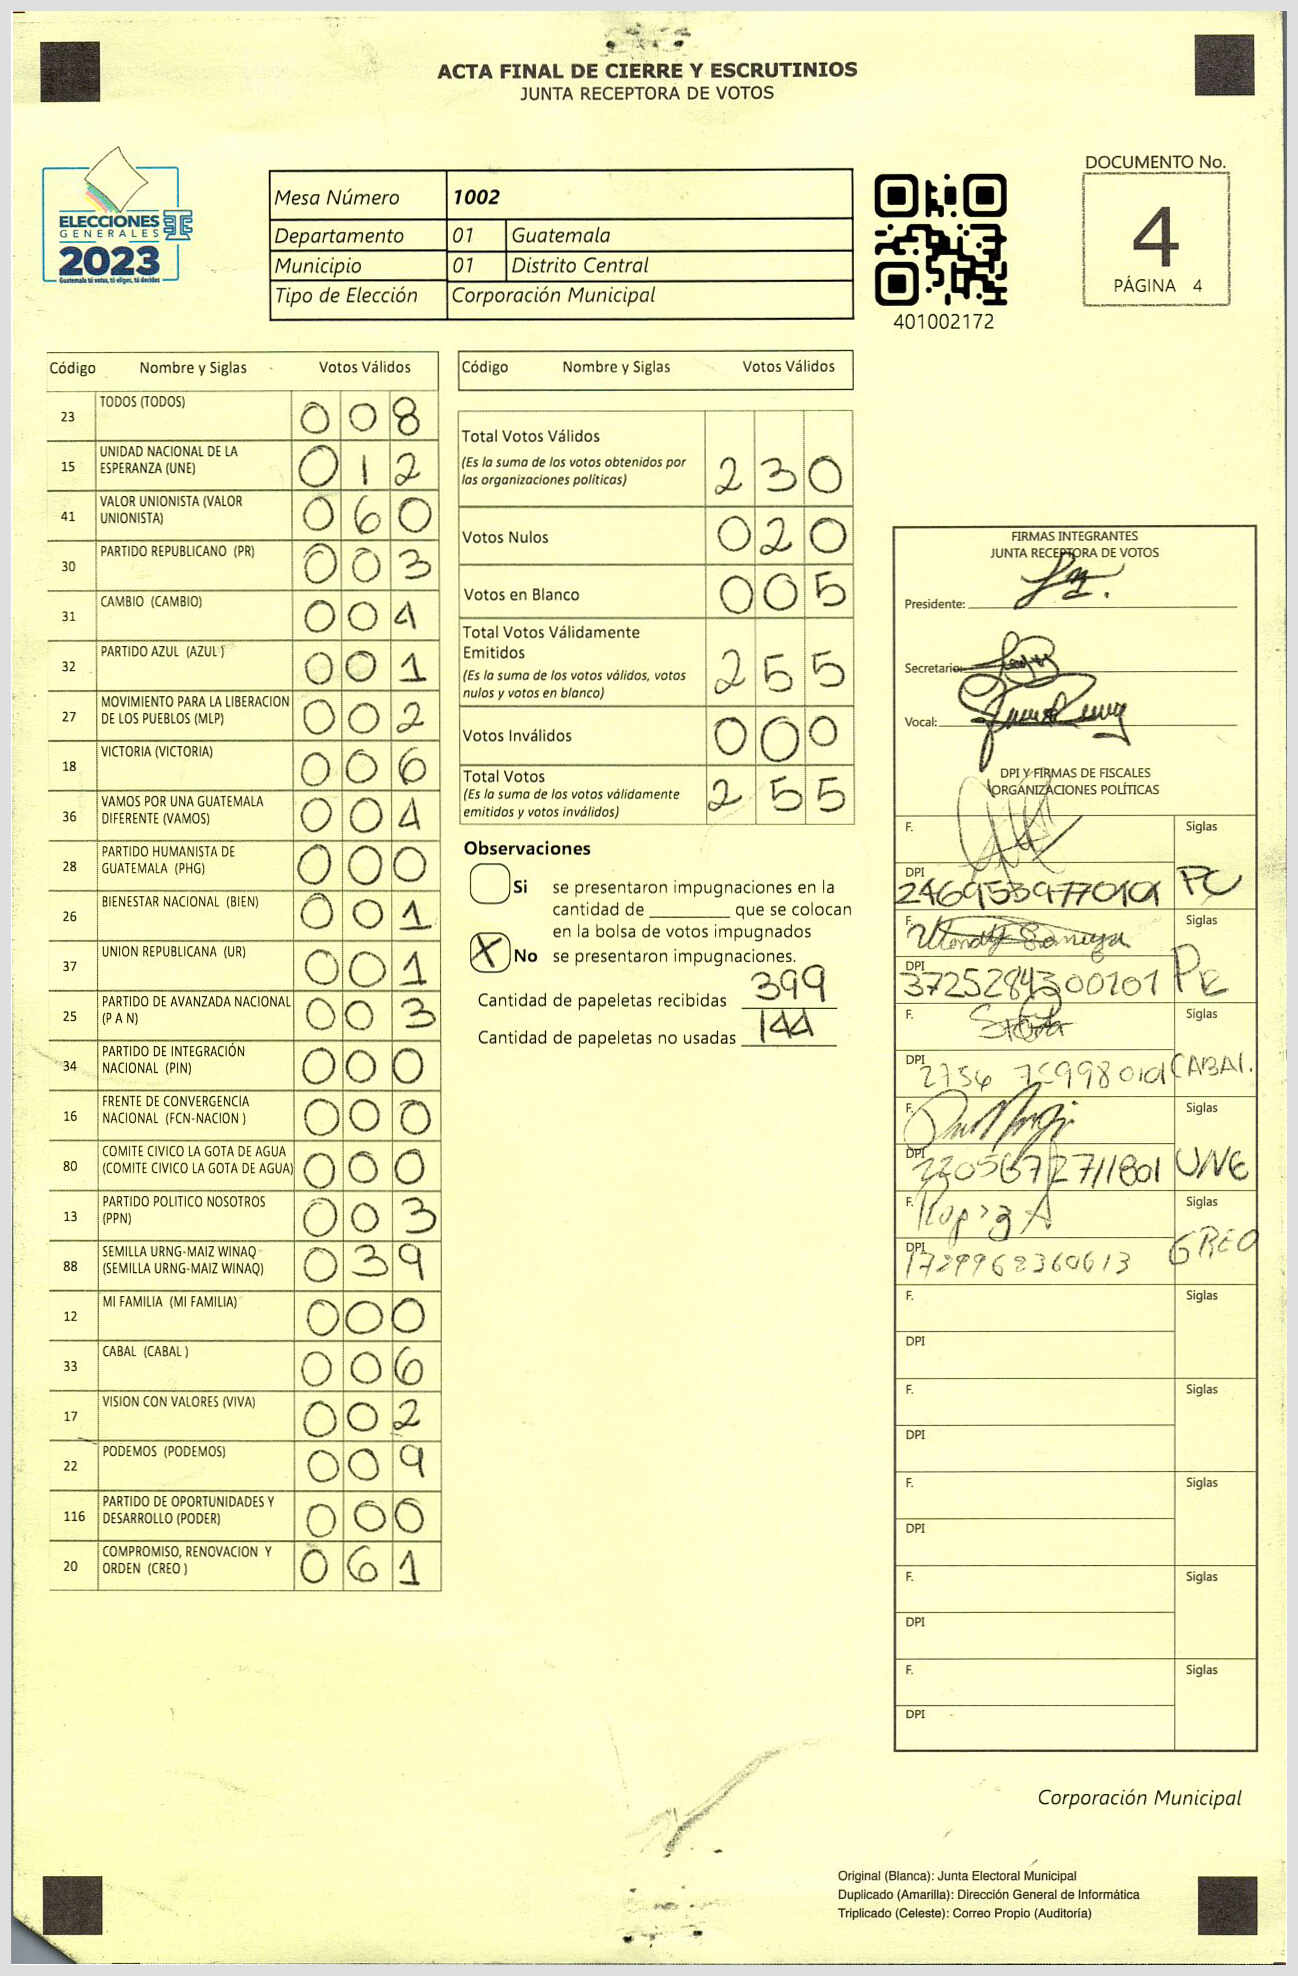 ACTA FINAL DE CIERRE Y ESCRUTINIOS
JUNTA RECEPTORA DE VOTOS
ELECCIONES
GENERALES
2023
Guatemala tú votas, tú eliges, tú decides
Mesa Número 1002
Departamento 01 Guatemala
Municipio 01 Distrito Central
Tipo de Elección Corporación Municipal
401002172
DOCUMENTO No.
4
PÁGINA 4
Código Nombre y Siglas Votos Válidos
23 TODOS (TODOS) 0 0 8
15 UNIDAD NACIONAL DE LA ESPERANZA (UNE) 0 1 2
41 VALOR UNIONISTA (VALOR UNIONISTA) 0 6 0
30 PARTIDO REPUBLICANO (PR) 0 0 3
31 CAMBIO (CAMBIO) 0 0 4
32 PARTIDO AZUL (AZUL) 0 0 1
27 MOVIMIENTO PARA LA LIBERACION DE LOS PUEBLOS (MLP) 0 0 2
18 VICTORIA (VICTORIA) 0 0 6
36 VAMOS POR UNA GUATEMALA DIFERENTE (VAMOS) 0 0 4
28 PARTIDO HUMANISTA DE GUATEMALA (PHG) 0 0 0
26 BIENESTAR NACIONAL (BIEN) 0 0 1
37 UNION REPUBLICANA (UR) 0 0 1
25 PARTIDO DE AVANZADA NACIONAL (P A N) 0 0 3
34 PARTIDO DE INTEGRACIÓN NACIONAL (PIN) 0 0 0
16 FRENTE DE CONVERGENCIA NACIONAL (FCN-NACION ) 0 0 0
80 COMITE CIVICO LA GOTA DE AGUA (COMITE CIVICO LA GOTA DE AGUA) 0 0 0
13 PARTIDO POLITICO NOSOTROS (PPN) 0 0 3
88 SEMILLA URNG-MAIZ WINAQ (SEMILLA URNG-MAIZ WINAQ) 0 3 9
12 MI FAMILIA (MI FAMILIA) 0 0 0
33 CABAL (CABAL ) 0 0 6
17 VISION CON VALORES (VIVA) 0 0 2
22 PODEMOS (PODEMOS) 0 0 9
116 PARTIDO DE OPORTUNIDADES Y DESARROLLO (PODER) 0 0 0
20 COMPROMISO, RENOVACION Y ORDEN (CREO ) 0 6 1
Código Nombre y Siglas Votos Válidos
Total Votos Válidos
(Es la suma de los votos obtenidos por
las organizaciones políticas) 2 3 0
Votos Nulos 0 2 0
Votos en Blanco 0 0 5
Total Votos Válidamente
Emitidos
(Es la suma de los votos válidos, votos
nulos y votos en blanco) 2 5 5
Votos Inválidos 0 0 0
Total Votos
(Es la suma de los votos válidamente
emitidos y votos inválidos) 2 5 5
Observaciones
Si se presentaron impugnaciones en la
cantidad de ________ que se colocan
en la bolsa de votos impugnados
X No se presentaron impugnaciones.
Cantidad de papeletas recibidas 399
Cantidad de papeletas no usadas 144
FIRMAS INTEGRANTES
JUNTA RECEPTORA DE VOTOS
Presidente:
Secretario:
Vocal:
DPI Y FIRMAS DE FISCALES
ORGANIZACIONES POLÍTICAS
F. Siglas
DPI
F. Siglas
DPI PR
F. Siglas
DPI CABAL
F. Siglas
DPI UNE
F. Siglas
DPI 1729962360613
F. Siglas
DPI
F. Siglas
DPI
F. Siglas
DPI
F. Siglas
DPI
F. Siglas
DPI
Corporación Municipal
Original (Blanca): Junta Electoral Municipal
Duplicado (Amarilla): Dirección General de Informática
Triplicado (Celeste): Correo Propio (Auditoría)